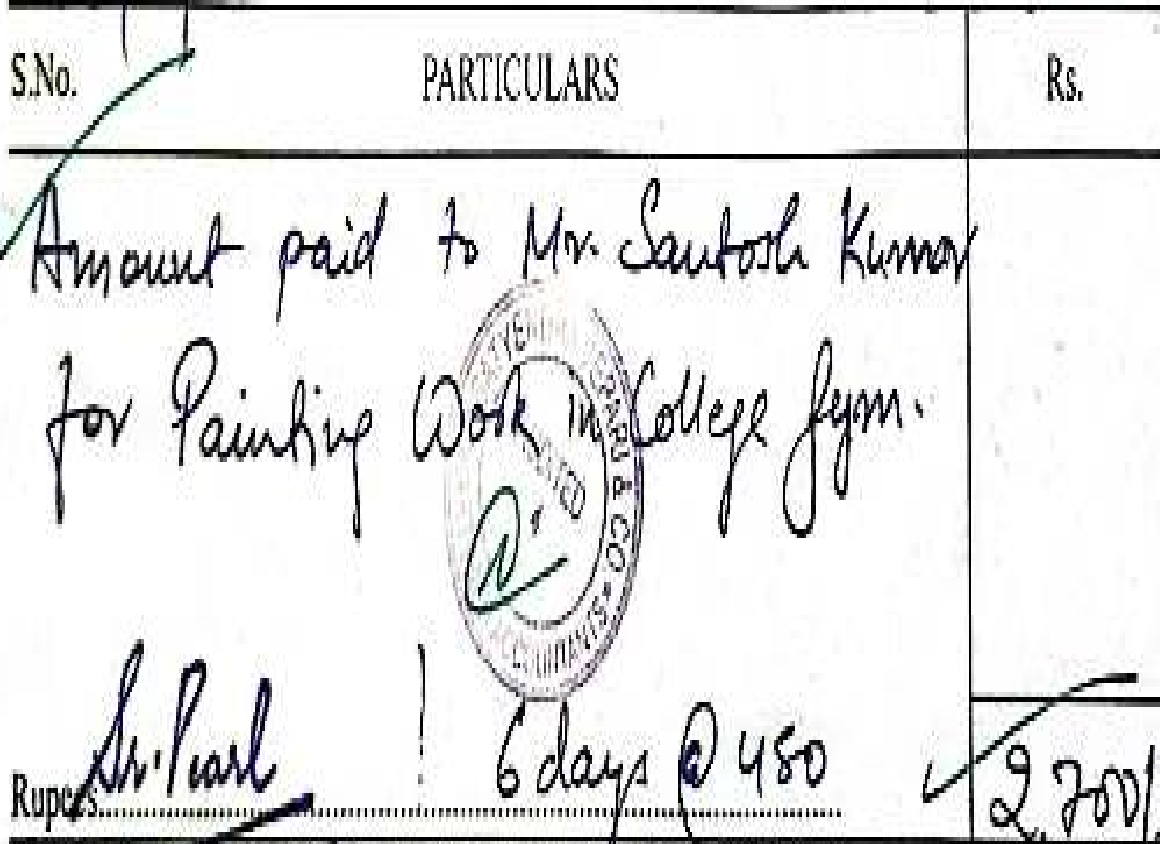 S.No. PARTICULARS Rs.
Amount paid to Mr. Santosh Kumar
for Painting Work in College Gym.
& CO
ACCOUNTANTS
Sr. Pearl 6 days @ 450
Rupees 2,700/-